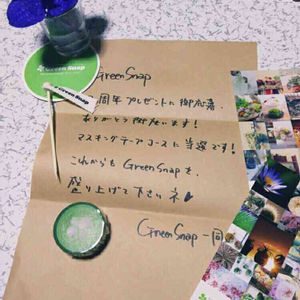 GreenSnap
GreenSnap
GreenSnap
周年プレゼントに御応募
ありがとう御座います!
マスキングテープコースに当選です!
これからもGreenSnapを、
盛り上げて下さいネ♥
GreenSnap一同